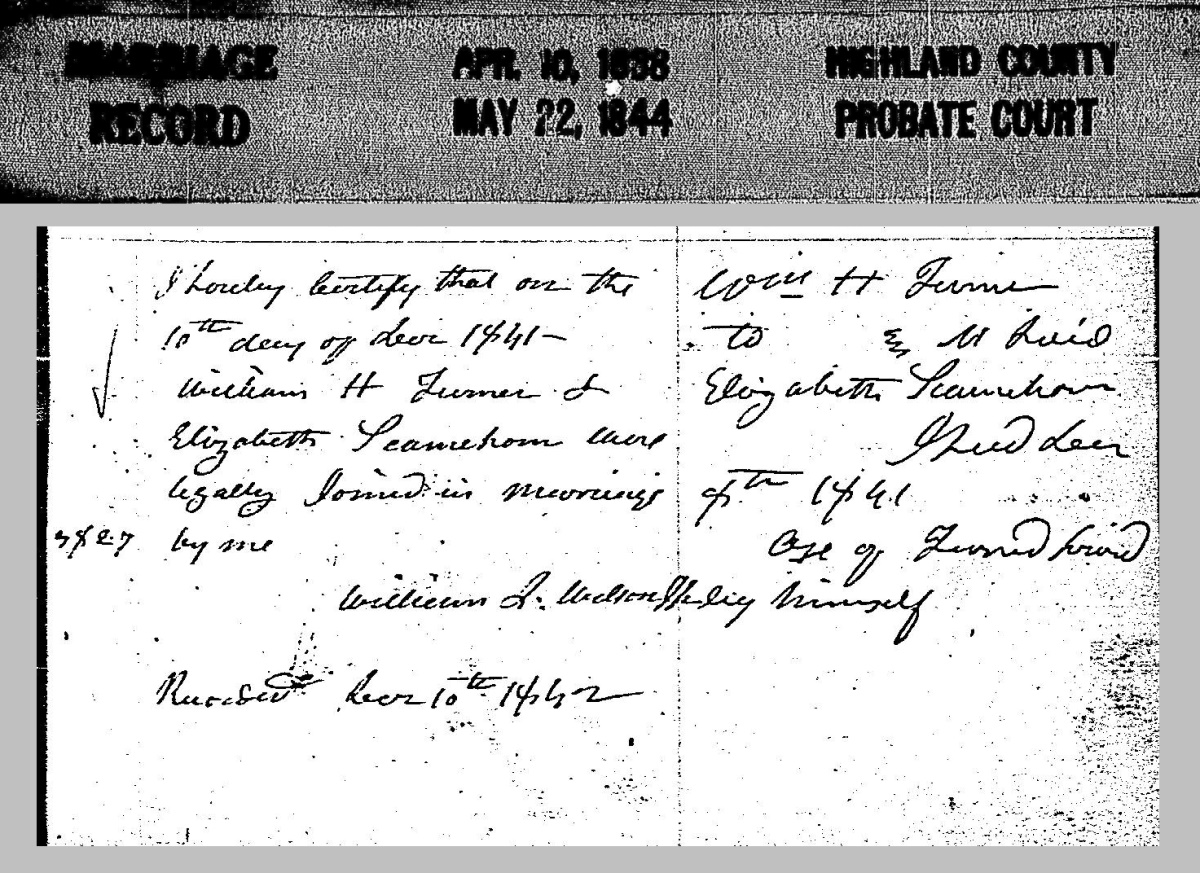 MARRIAGE RECORD
APR. 10, 1838
MAY 22, 1844
HIGHLAND COUNTY
PROBATE COURT
I hereby Certify that on the
10th day of Decr 1841
William H Turner &
Elizabeth Scamehorn were
legally Joined in marriage
by me
William
Decr 10th 1842
Wm H Turner
to
Elizabeth Scamehorn
Issued Decr
8th 1841
age of Turner
by himself